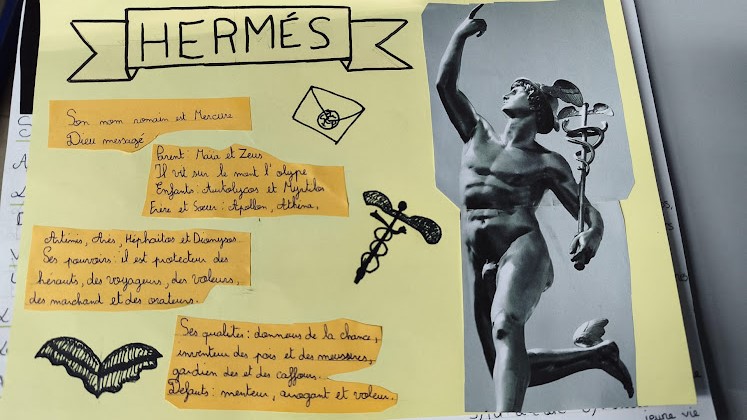 HERMÉS
Son nom romain est Mercure
Dieu messagé
Parent : Maïa et Zeus
Il vit sur le mont l'olype
Enfants : Autolycos et Myrtilos
Frère et Sœur : Apollon, Athéna,
Artémis, Arès, Héphaïtos et Dionysos.
Ses pouvoirs : il est protecteur des
hérauts, des voyageurs, des voleurs,
des marchand et des orateurs.
Ses qualités : donneurs de la chance,
inventeur des pois et des messières,
gardien des et des caffours.
Défauts : menteur, arrogant et voleur.
jeune vie